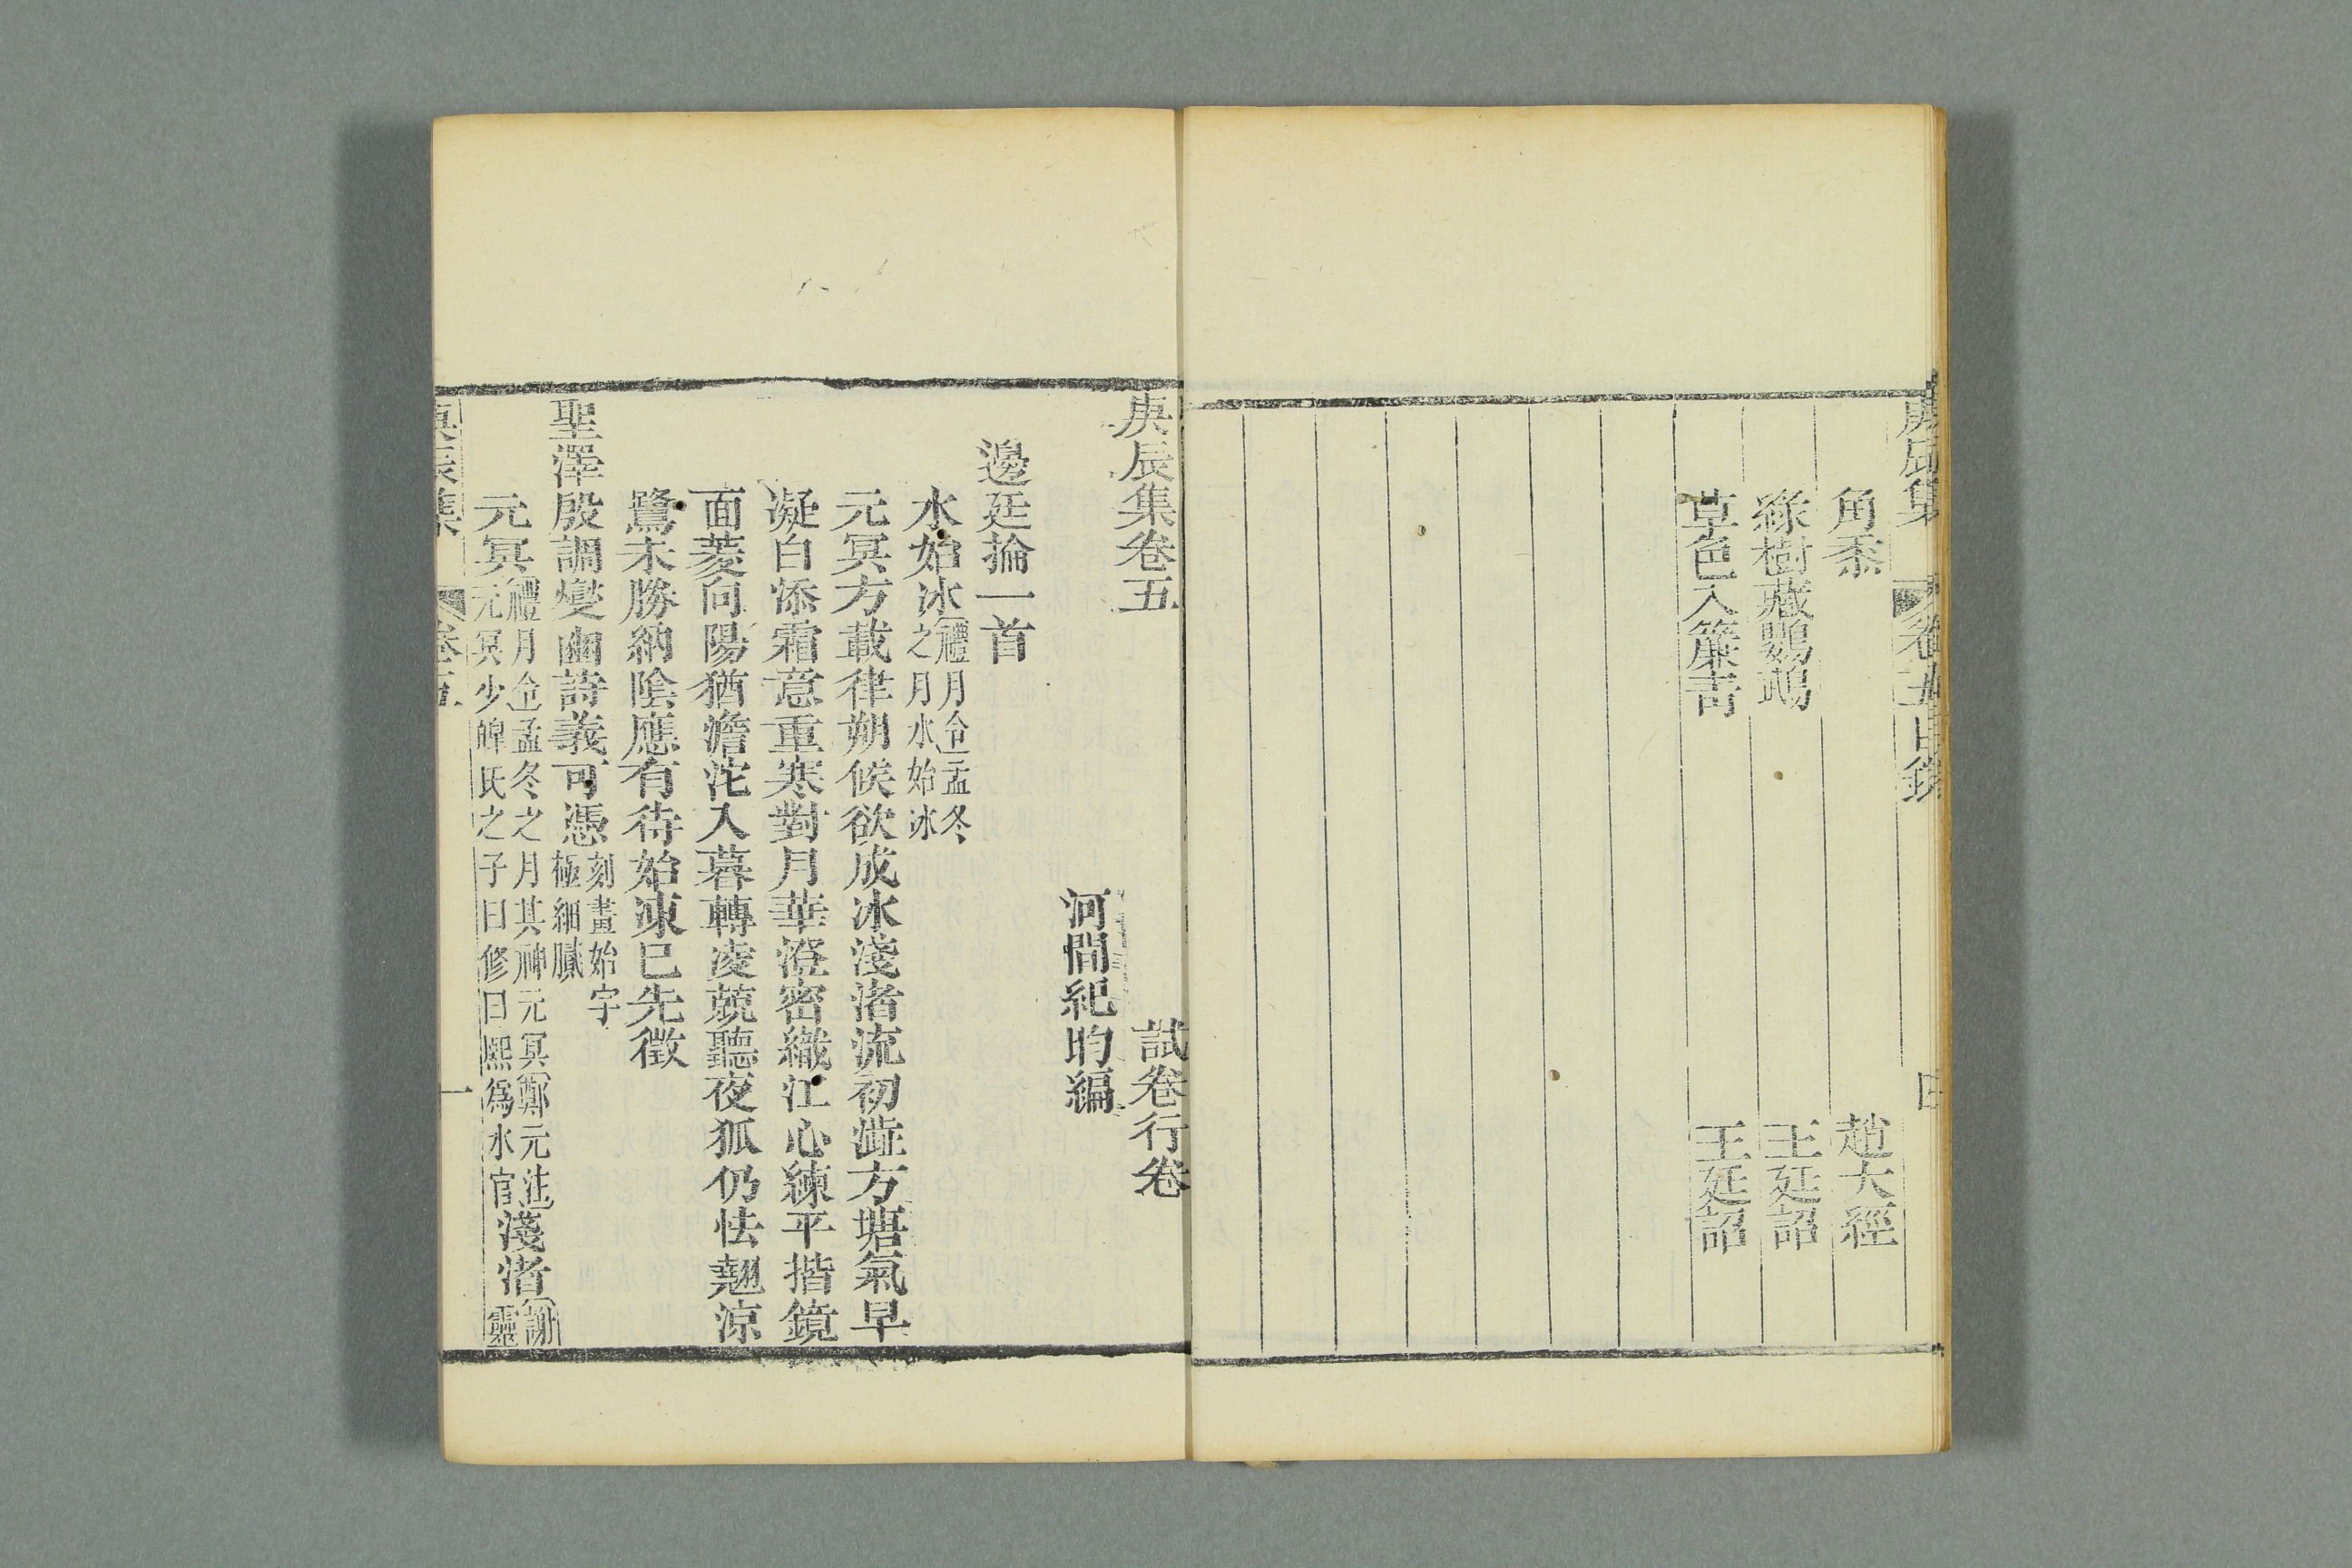 角黍　趙大經
綠樹藏鸚鵡　王廷詔
草色入簾青　王廷詔
庚辰集卷五　試卷行卷
河間紀昀編
邊廷掄一首
水始冰禮月令孟冬之月水始冰
元冥方載律朔候欲成冰淺渚流初澁方塘氣早
凝白添霜意重寒對月華澄密織江心練平揩鏡
面菱向陽猶澹沱入暮轉凌兢聽夜狐仍怯翹涼
鷺未勝納陰應有待始凍已先徵
聖澤殷調燮豳詩義可憑刻畫始字極細膩
元冥禮月令孟冬之月其神元冥鄭元注元冥少皥氏之子曰修曰熙爲水官淺渚謝靈
庚辰集　卷五　一